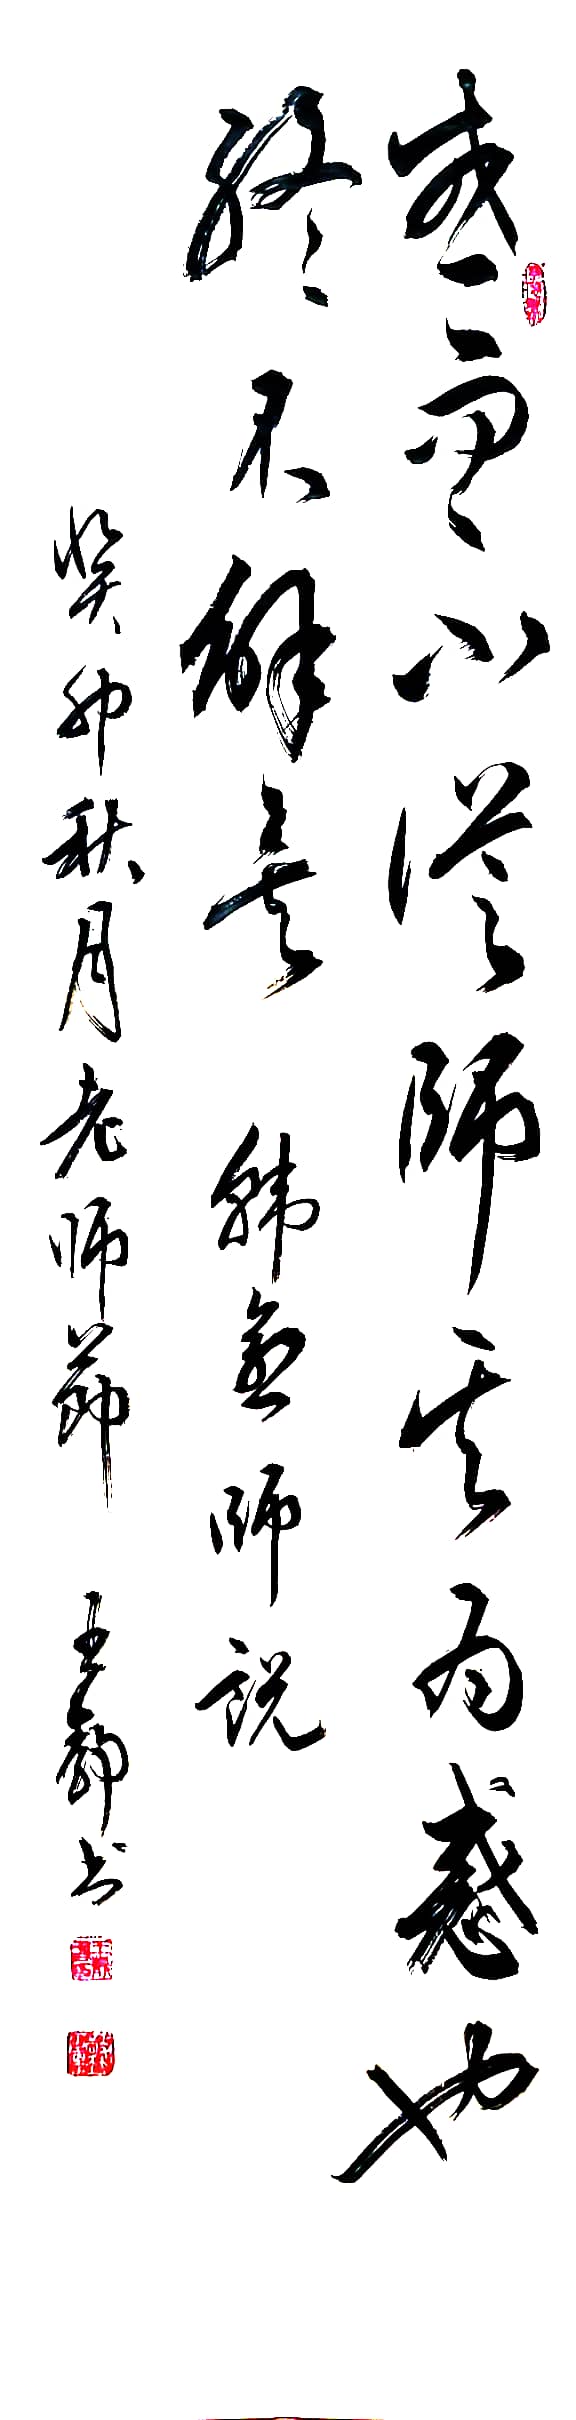 惑而不從師其為惑也
終不解矣 韓愈師説
癸卯秋月老师節 王靜书